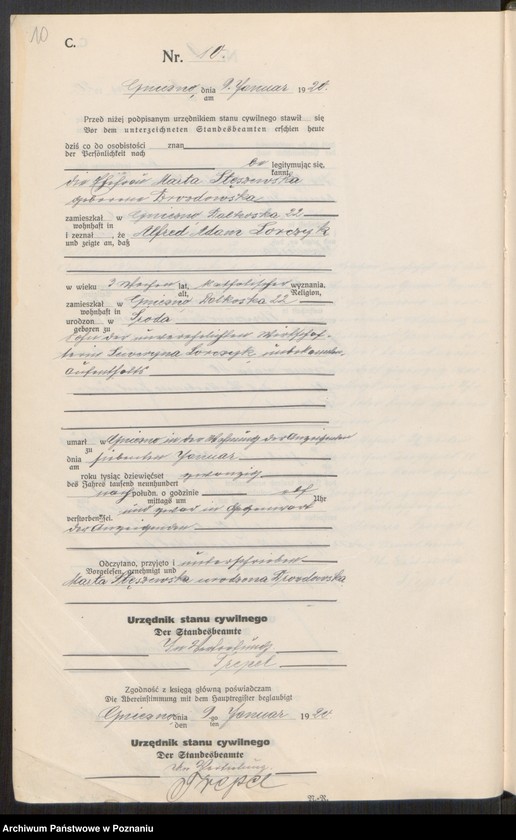 10
C.
Nr. 10.
Gniezno, dnia 9. Januar 1920.
am
Przed niżej podpisanym urzędnikiem stanu cywilnego stawił się
Vor dem unterzeichneten Standesbeamten erschien heute
dziś co do osobistości znan
der Persönlichkeit nach
be legitymując się,
kannt,
die Ehefrau Marta Stęszewska
geborene Drozdowska
zamieszkał w Gniezno Dalkoska 22
wohnhaft in
i zeznał, że Alfred Adam Lorczyk
und zeigte an, daß
w wieku 3 Wochen lat, katholischer wyznania,
alt, Religion,
zamieszkał w Gniezno Dalkoska 22
wohnhaft in
urodzon w Sroda
geboren zu
Sohn der unverehelichten Wirtschaf-
terin Seweryna Lorczyk unbekannten
Aufenthalts
umarł w Gniezno in der Wohnung der Anzeigenden
zu
dnia siebenten Januar
am
roku tysiąc dziewięćset zwanzig
des Jahres tausend neunhundert
nach połudn. o godzinie elf
mittags um Uhr
und zwar in Gegenwart
verstorben sei.
der Anzeigenden
Odczytano, przyjęto i unterschrieben
Vorgelesen, genehmigt und
Marta Stęszewska urodzona Drozdowska
Urzędnik stanu cywilnego
Der Standesbeamte
In Vertretung
Trepel
Zgodność z księgą główną poświadczam
Die Übereinstimmung mit dem Hauptregister beglaubigt
Gniezno dnia 9 go Januar 1920
den ten
Urzędnik stanu cywilnego
Der Standesbeamte
In Vertretung
Trepel
Archiwum Państwowe w Poznaniu